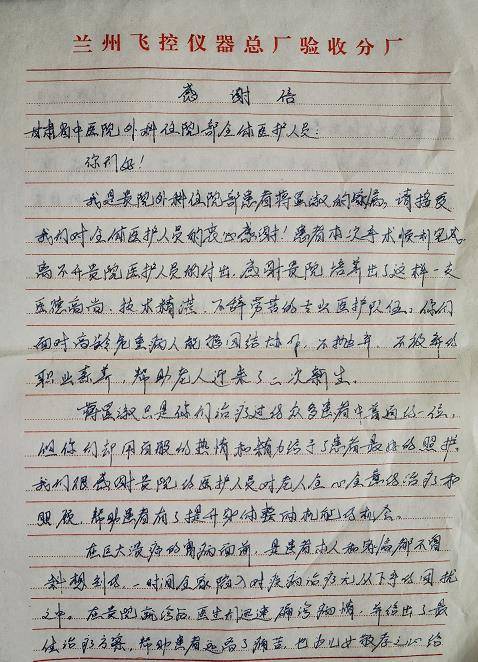 兰州飞控仪器总厂验收分厂
感谢信
甘肃省中医院外科住院部全体医护人员:
你们好!
我是贵院外科住院部患者蒋玉淑的家属,请接受
我们对全体医护人员的衷心感谢!患者本次手术顺利完成
离不开贵院医护人员的付出,感谢贵院培养出了这样一支
医德高尚、技术精湛、不辞劳苦的专业医护队伍,你们
面对高龄危重病人能够团结协作、不抛弃、不放弃的
职业素养,帮助老人迎来了二次新生。
蒋玉淑只是你们治疗过的众多患者中普通的一位,
但你们却用百般的热情和精力给予了患者最好的照护,
我们很感谢贵院的医护人员对老人全心全意的治疗和
照顾,帮助患者有了提升身体整体机能的机会。
在巨大溃疡的胃病面前,是患者本人和家属都不曾
料想到的,一时间全家陷入对疾病治疗无从下手的困扰
之中。在贵院就诊后,医生们迅速确诊病情,并给出了最
佳治疗方案,帮助患者远离了病苦,也为儿女敬孝之心给